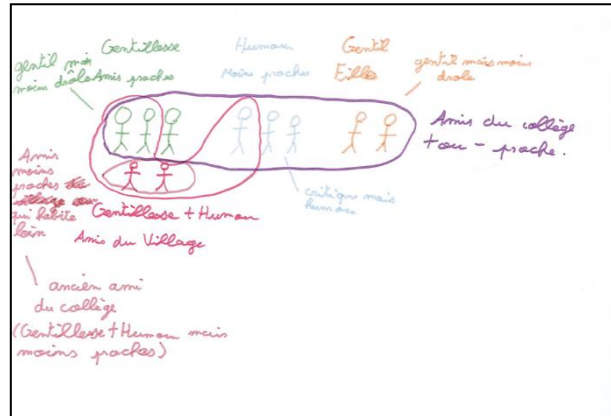 Gentillesse
Amis proches
gentil mais
moins drôle
Humour
Moins proches
Gentil
Filles
gentil mais moins
drole
Amis du collège
+ ou - proche.
critique mais
humour
Amis
moins
proches
qui habite
loin
Gentillesse + Humour
Amis du Village
ancien ami
du collège
(Gentillesse + Humour mais
moins proches)